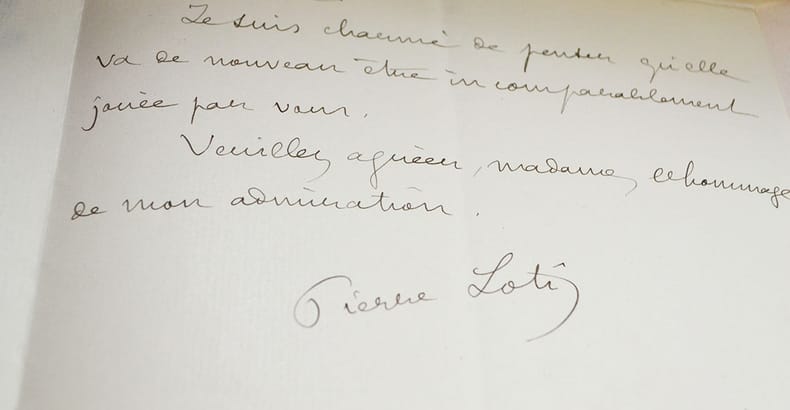 Je suis charmé de penser qu'elle
va de nouveau être incomparablement
jouée par vous.
Veuillez agréer, madame, l'hommage
de mon admiration.
Pierre Loti